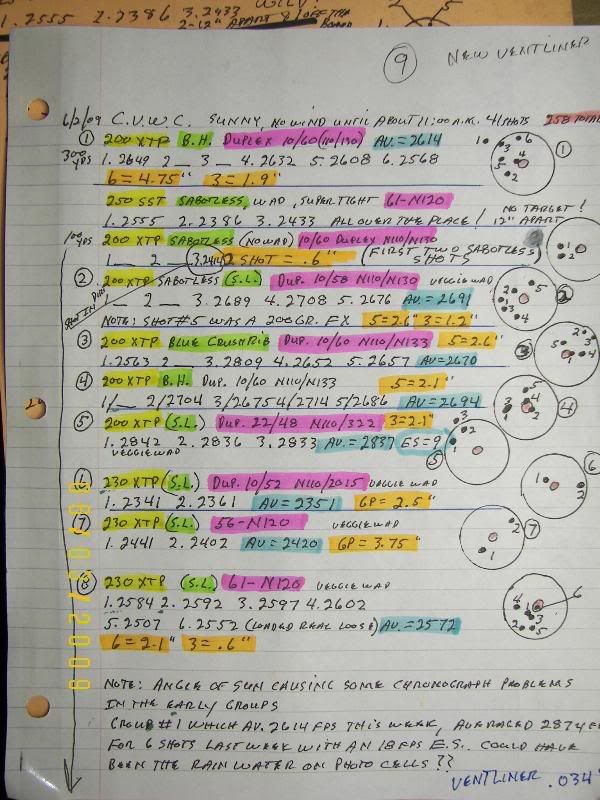 1.2555 2.2386 3.2433
2-12" APART & OFF THE
BOARD
9 NEW VENTLINER
6/2/09 C.V.W.C. SUNNY, NO WIND UNTIL ABOUT 11:00 A.M. 41 SHOTS 258 TOTAL
1 200 XTP B.H. DUPLEX 10/60 (110/130) AV.=2614
300 YDS 1.2649 2 __ 3 __ 4.2632 5.2608 6.2568
6=4.75" 3=1.9"
250 SST SABOTLESS, WAD, SUPER TIGHT 61-N120 NO TARGET!
1.2555 2.2386 3.2433 ALL OVER THE PLACE! 12" APART
100 YDS 200 XTP SABOTLESS (NO WAD) 10/60 DUPLEX N110/N130
1 __ 2 __ 3.2414 2 SHOT = .6" (FIRST TWO SABOTLESS SHOTS)
2 200 XTP SABOTLESS (S.L.) DUP. 10/58 N110/N130 VEGGIEWAD
SHOT IN DIRT
1 __ 2 __ 3.2689 4.2708 5.2676 AV=2691
NOTE: SHOT #5 WAS A 200GR. FX 5=2.6" 3=1.2"
3 200 XTP BLUE CRUSH RIB DUP. 10/60 N110/N133 5=2.6"
1.2563 2 __ 3.2809 4.2652 5.2657 AV=2670
4 200 XTP B.H. DUP. 10/60 N110/N133 5=2.1"
1/__ 2/2704 3/2675 4/2714 5/2686 AV=2694
5 200 XTP (S.L.) DUP. 22/48 N110/322 3=2.1"
1.2842 2.2836 3.2833 AV.=2837 ES=9
VEGGIEWAD
6 230 XTP (S.L.) DUP. 10/52 N110/2015 VEGGIE WAD
1.2341 2.2361 AV=2351 GP=2.5"
7 230 XTP (S.L.) 56-N120 VEGGIEWAD
1.2441 2.2402 AV=2420 GP=3.75"
8 230 XTP (S.L.) 61-N120 VEGGIE WAD
1.2584 2.2592 3.2597 4.2602
5.2507 6.2552 (LOADED REAL LOOSE) AV.=2572
6=2.1" 3=.6"
NOTE: ANGLE OF SUN CAUSING SOME CHRONOGRAPH PROBLEMS
IN THE EARLY GROUPS
GROUP #1 WHICH AV. 2614 FPS THIS WEEK, AVERAGED 2874
FOR 6 SHOTS LAST WEEK WITH AN 18 FPS E.S. COULD HAVE
BEEN THE RAIN WATER ON PHOTO CELLS??
VENTLINER .034"
06/03/2009